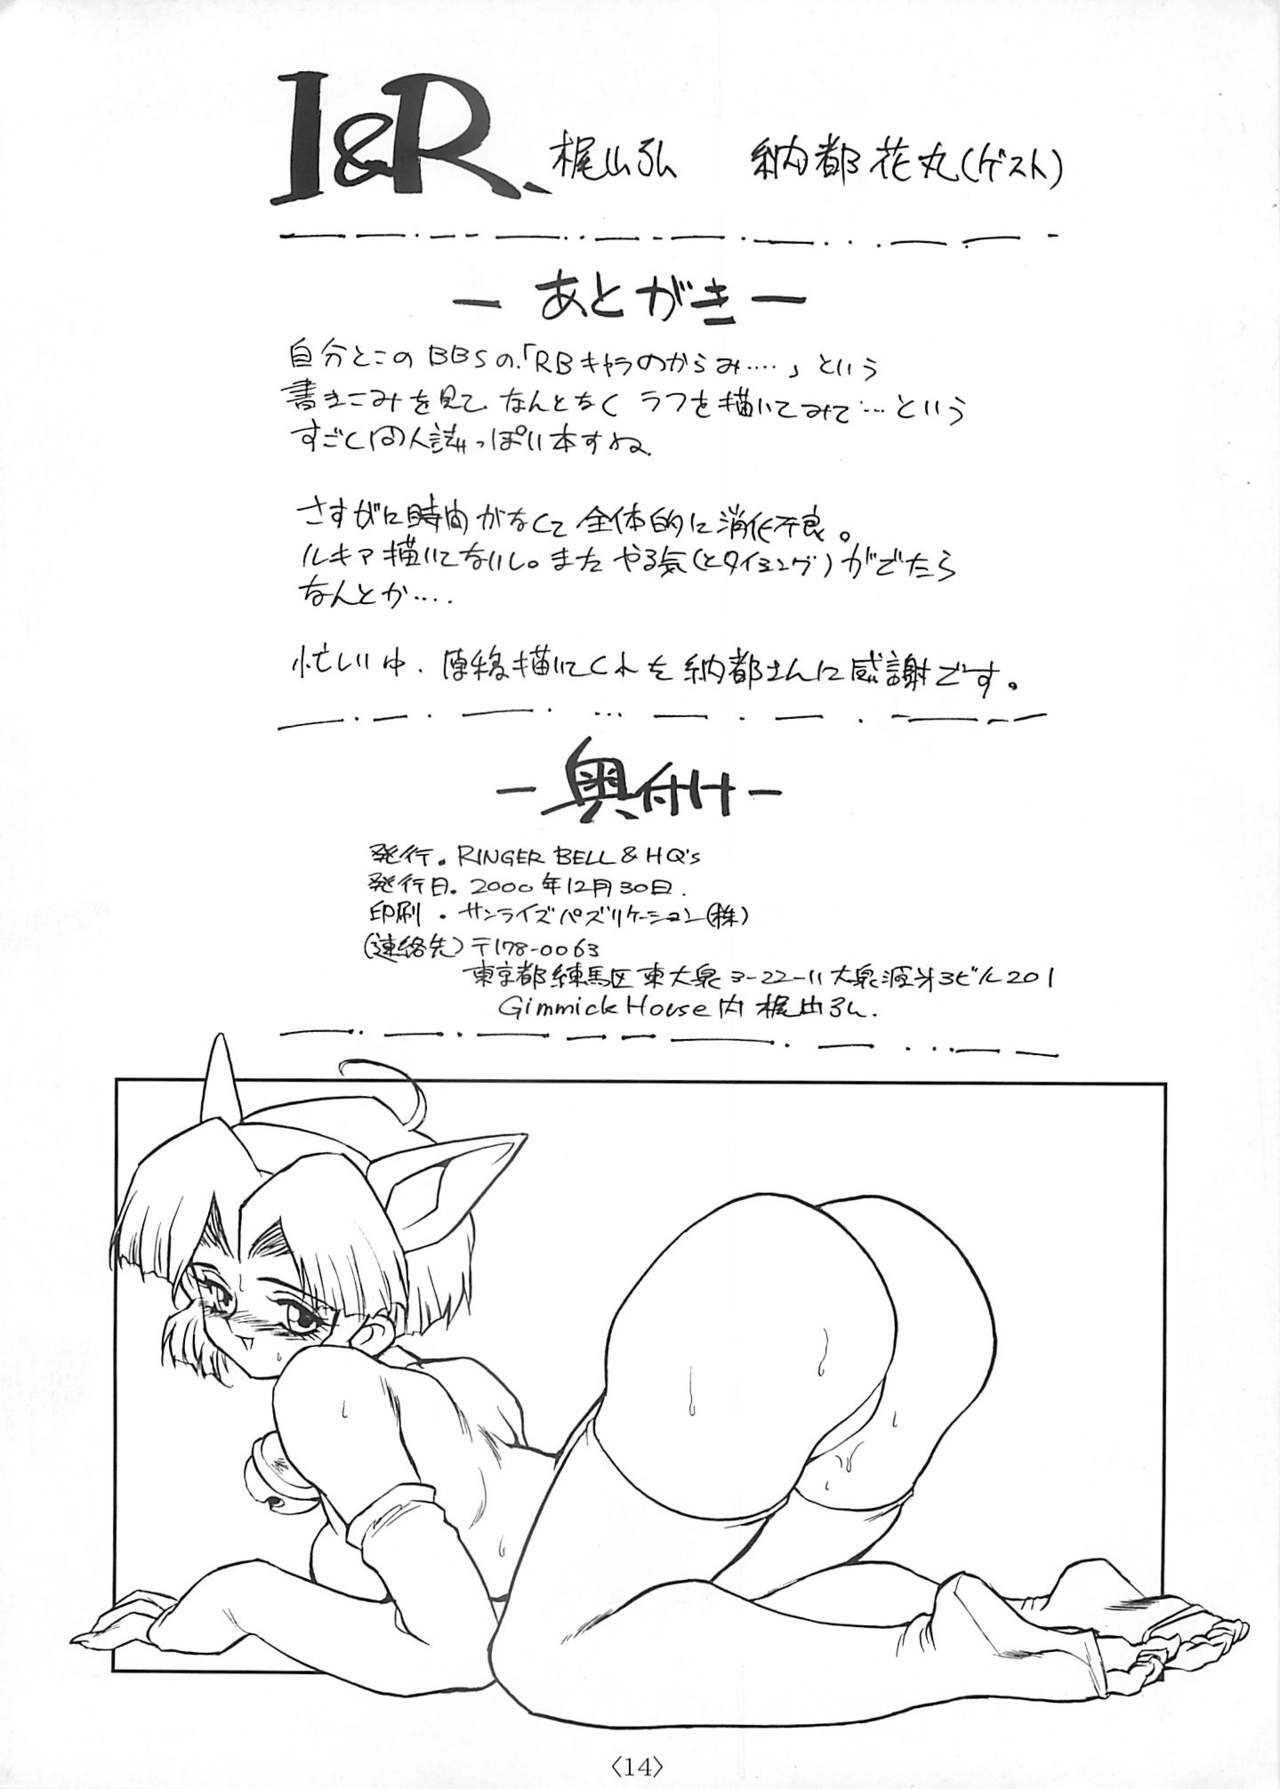 I&R、 梶山弘 納都花丸(ゲスト)
— あとがき —
自分とこのBBSの、「RBキャラのからみ‥‥」という
書きこみを見て、なんとなく ラフを描いてみて‥‥という
すごく同人誌っぽい本すね。
さすがに時間がなくて全体的に消化不良。
ルキア描いてないし。また やる気(とタイミング)がでたら
なんとか‥‥.
忙しい中、原稿描いてくれた納都さんに感謝です。
— 奥付け —
発行。RINGER BELL & HQ's
発行日。2000年12月30日.
印刷・サンライズパブリケーション(株)
(連絡先)〒178-0063
東京都練馬区東大泉3-22-11大泉源牙3ビル201
Gimmick House内 梶山弘.
〈14〉